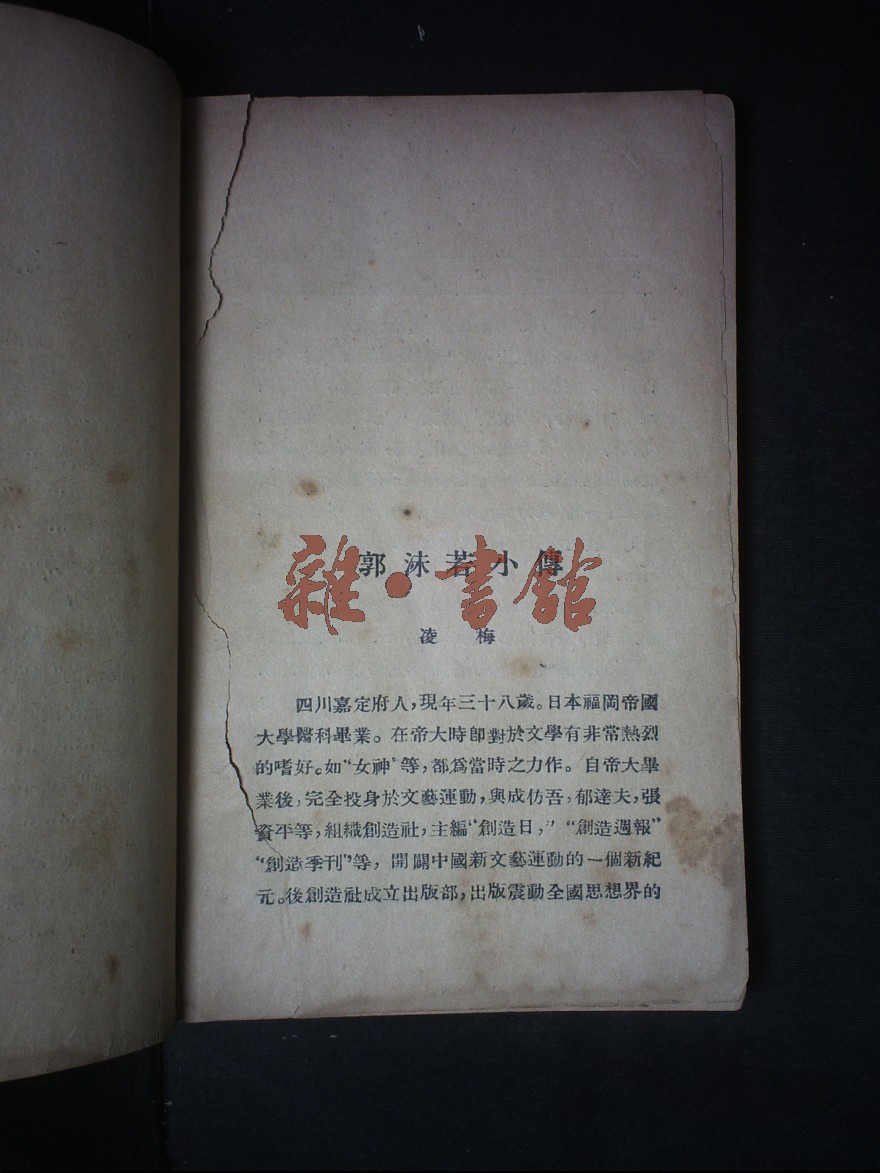 郭沫若小傳
雜·書館
凌梅
四川嘉定府人，現年三十八歲。日本福岡帝國
大學醫科畢業。在帝大時卽對於文學有非常熱烈
的嗜好。如“女神”等，都爲當時之力作。自帝大畢
業後，完全投身於文藝運動，與成仿吾，郁達夫，張
資平等，組織創造社，主編“創造日，”“創造週報”
“創造季刊”等，開闢中國新文藝運動的一個新紀
元。後創造社成立出版部，出版震動全國思想界的